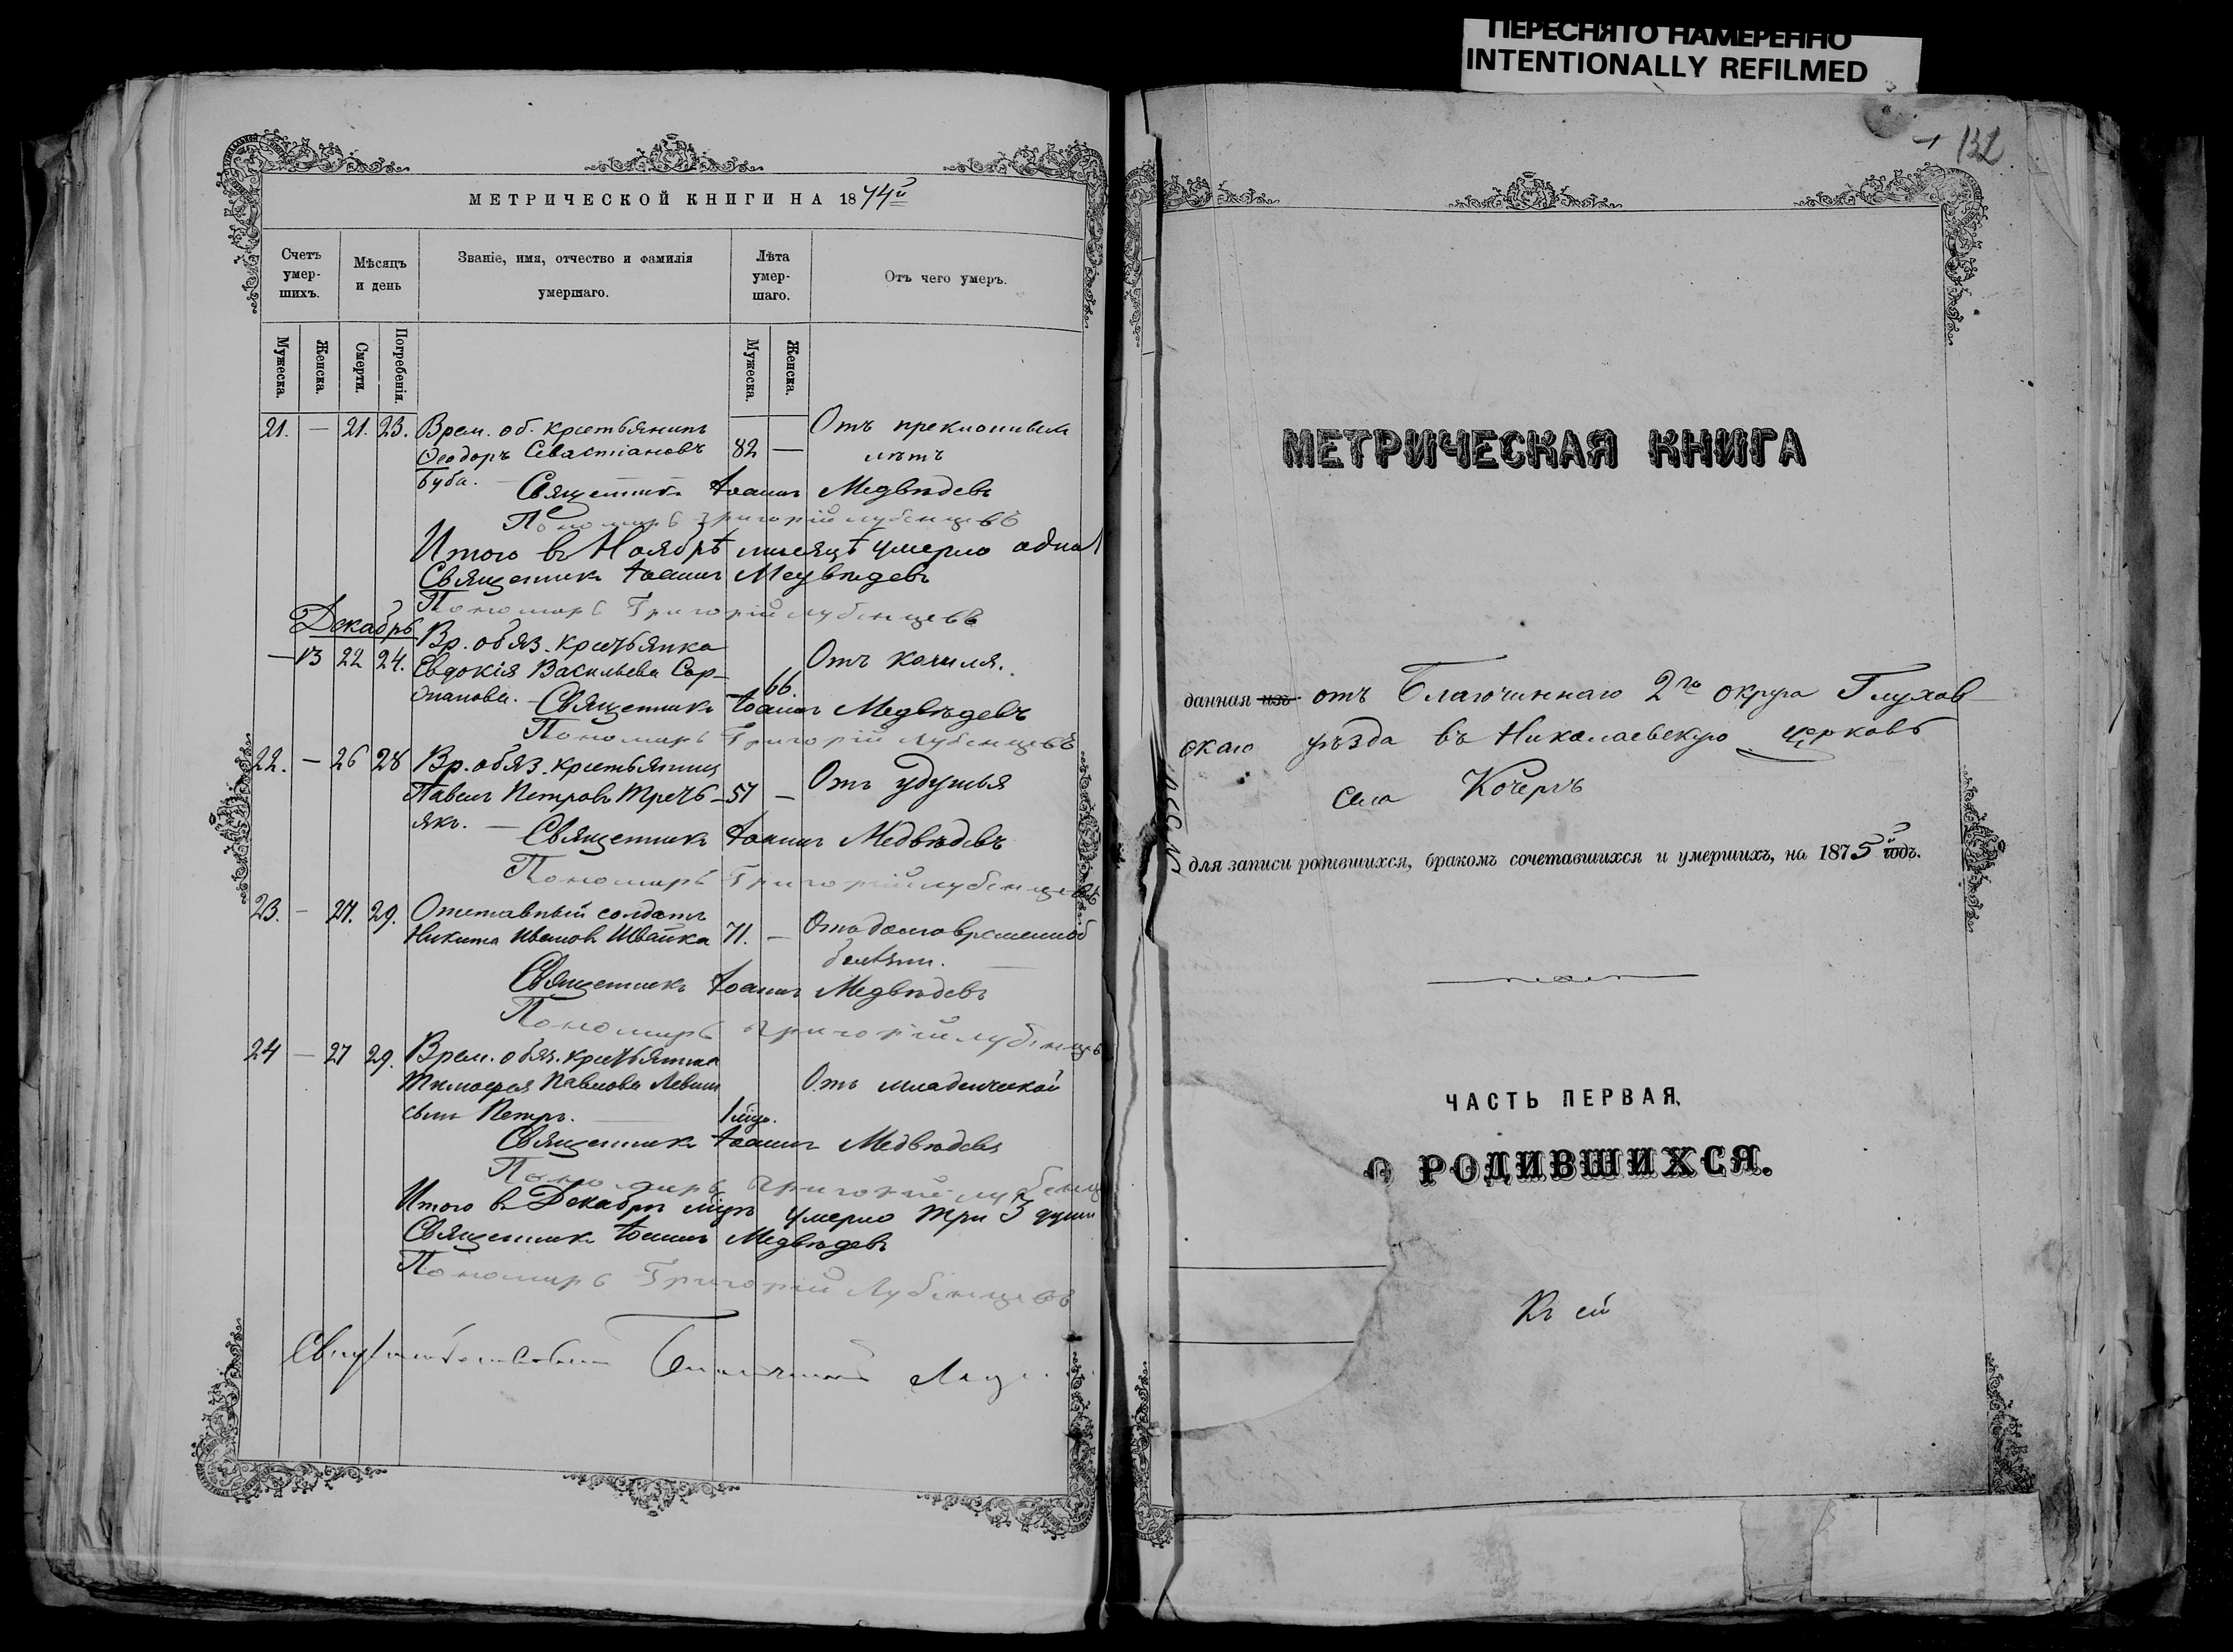 ПЕРЕСНЯТО НАМЕРЕННО
INTENTIONALLY REFILMED
МЕТРИЧЕСКОЙ КНИГИ НА 1874й
Счетъ умер-шихъ.
Мѣсяцъ и день
Званіе, имя, отчество и фамилія умершаго.
Лѣта умер-шаго.
Отъ чего умеръ.
Мужеска.
Женска.
Смерти.
Погребенія.
Мужеска.
Женска.
21. — 21. 23. Врем. об. крестьянинъ Отъ преклонныхъ
Ѳеодоръ Севастіановъ 82 — лѣтъ
Буба.
Священникъ Іоаннъ Медвѣдевъ
Пономарь Григорій Лубенцевъ
Итого въ Ноябрѣ мѣсяцѣ умерло одна
Священникъ Іоаннъ Медвѣдевъ
Пономарь Григорій Лубенцевъ
Декабрь
Вр. обяз. крестьянка
— 13 22 24. Евдокія Васильева Сер- 66. Отъ кашля.
Священникъ Іоаннъ Медвѣдевъ
Пономарь Григорій Лубенцевъ
22. — 26 28 Вр. обяз. крестьянинъ
Павелъ Петровъ Треть- 57 — Отъ удушья
якъ. — Священникъ Іоаннъ Медвѣдевъ
Пономарь Григорій Лубенцевъ
23. — 27. 29. Отставный солдатъ
Никита Ивановъ Швайка 71. — Отъ долговременной
болѣзни.
Священникъ Іоаннъ Медвѣдевъ
Пономарь Григорій Лубенцевъ
24 — 27 29. Врем. обяз. крестьянина
Тимофея Павлова Левши Отъ младенческой
сынъ Петръ. 1 мѣц.
Священникъ Іоаннъ Медвѣдевъ
Пономарь Григорій Лубенц
Итого въ Декабрѣ мѣцѣ умерло три 3 души
Священникъ Іоаннъ Медвѣдевъ
Пономарь Григорій Лубенцевъ
Благочинный
132
МЕТРИЧЕСКАЯ КНИГА
данная изъ отъ Благочиннаго 2го округа Глухов-
скаго уѣзда въ Николаевскую церковь
села Кочергъ
для записи родившихся, бракомъ сочетавшихся и умершихъ, на 1875й годъ.
ЧАСТЬ ПЕРВАЯ,
О РОДИВШИХСЯ.
Къ сей